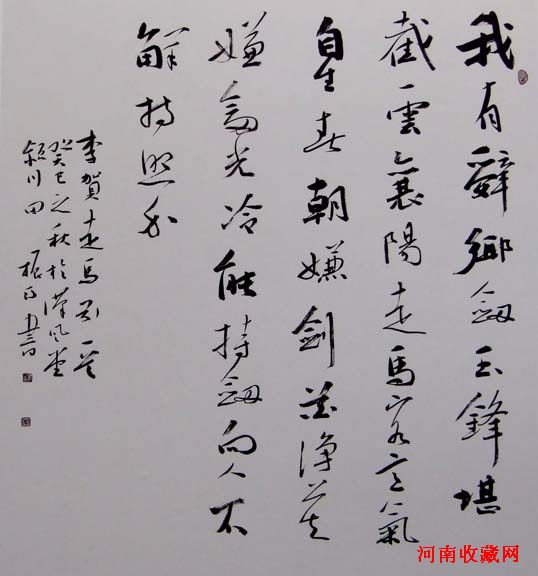 我有辭鄉劍玉鋒堪
截雲襄陽走馬客意氣
自生春朝嫌劍花淨暮
嫌劍光冷能持劍向人不
解持照身
李賀走馬引一首
癸巳之秋於漢風堂
川田振書
河南收藏网